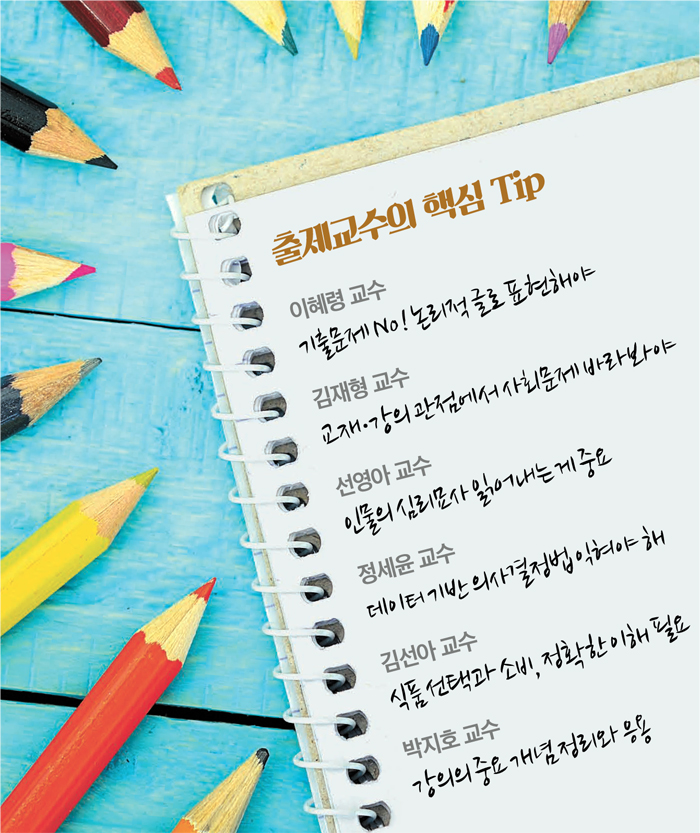 출제교수의 핵심 Tip
이혜령 교수
기출문제 No! 논리적 글로 표현해야
김재형 교수
교재·강의 관점에서 사회문제 바라봐야
선영아 교수
인물의 심리묘사 읽어내는 게 중요
정세윤 교수
데이터 기반 의사결정법 익혀야 해
김선아 교수
식품 선택과 소비, 정확한 이해 필요
박지호 교수
강의의 중요 개념 정리와 응용